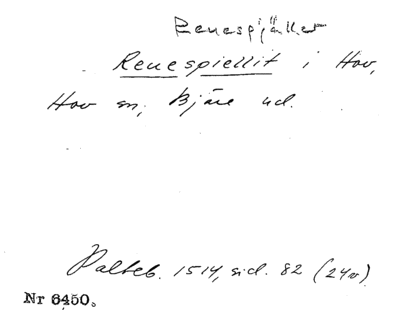 Renespjället
Renespiellit i Hov,
Hov sn, Bjäre hd.
Palteb. 1514, sid. 82 (24v)
Nr 6450.